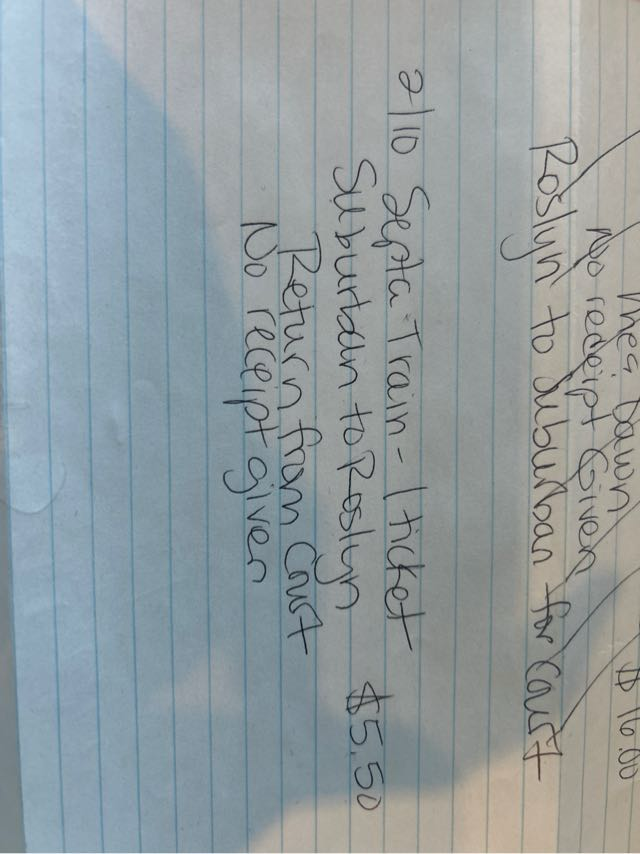 Down $16.00
No receipt Given
Roslyn to Suburban for Court
2/10 Septa Train - 1 ticket
Suburban to Roslyn $5.50
Return from Court
No receipt given